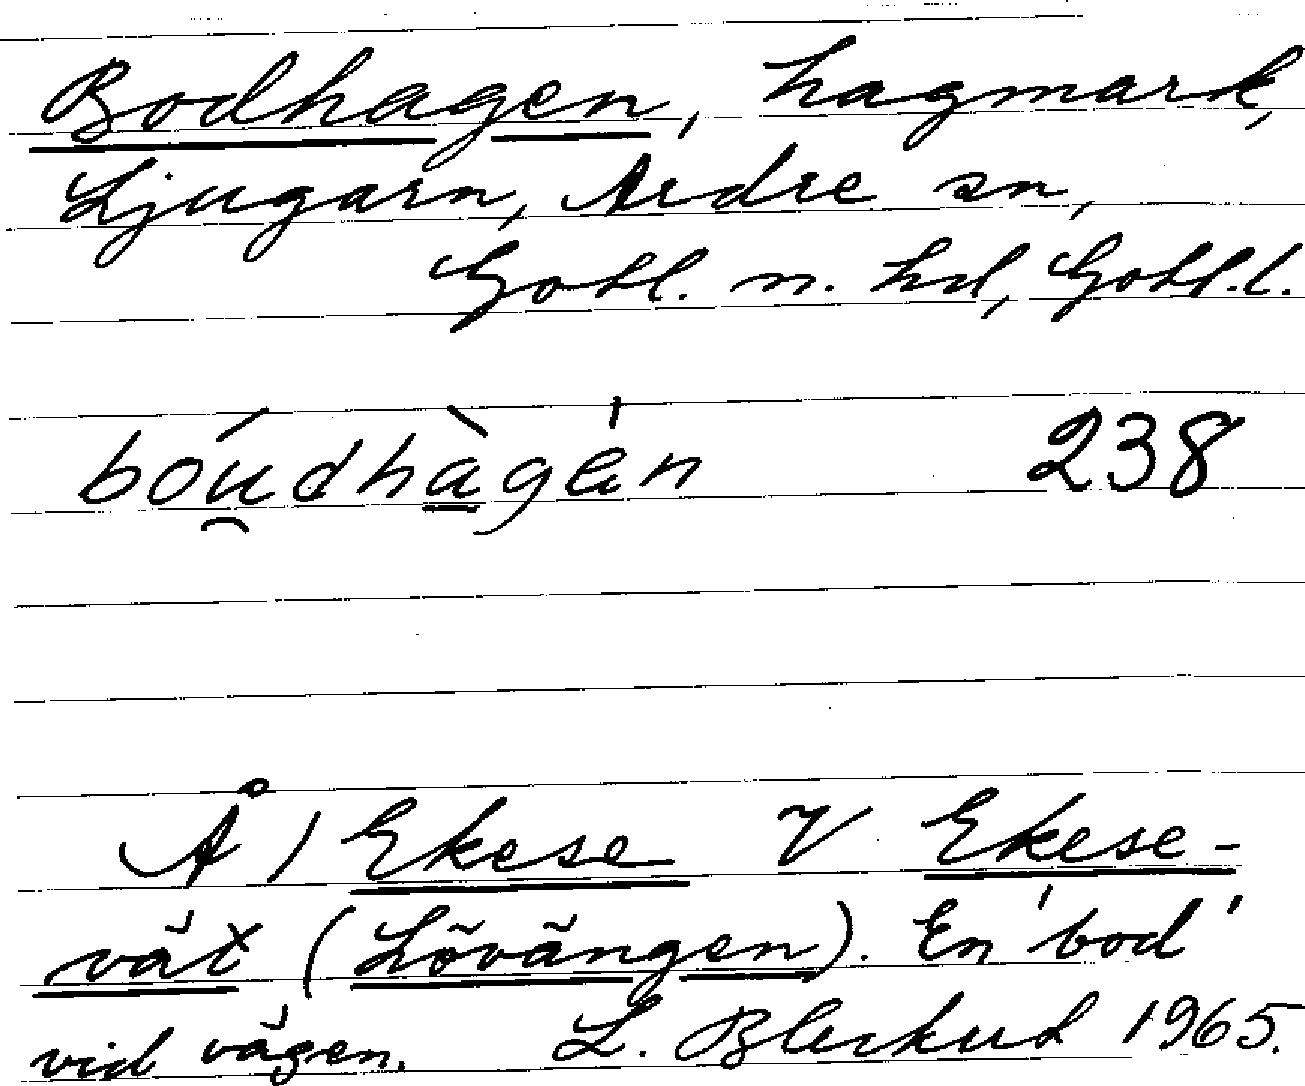 Bodhagen, hagmark,
Ljugarn, Ardre sn,
Gotl. n. hd, Gotl.l.
bóu̯dhàgen 238
Å 1 Ekese V Ekese-
vät (Lövängen). En 'bod'
vid vägen. L. Bleckud 1965.